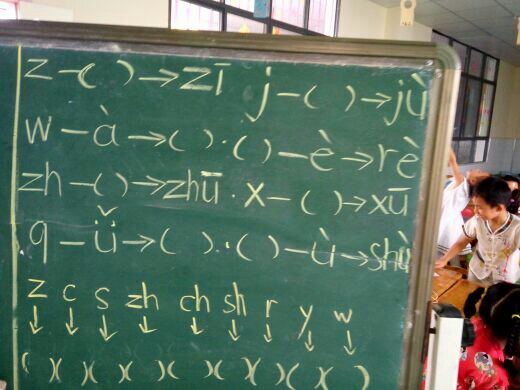 z -( )→zī j-( )→jù
w-à→( )·( )-è→rè
zh-( )→zhū·x-( )→xū
q-ǚ→( )·( )-ù→shù
z c s zh ch sh r y w
↓ ↓ ↓ ↓ ↓ ↓ ↓ ↓ ↓
( )( )( )( )( )( )( )( )